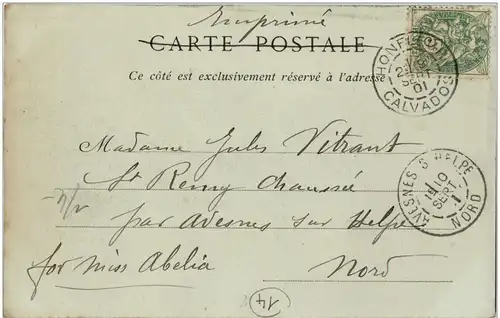 Imprimé
CARTE POSTALE
Ce côté est exclusivement réservé à l'adresse
HONFLEUR
CALVADOS
Madame Jules Vitrant
St Remy Chaussée
par Avesnes sur Helpe
for Miss Abelia
Nord
AVESNES S. HELPE
10
SEPT.
NORD
14